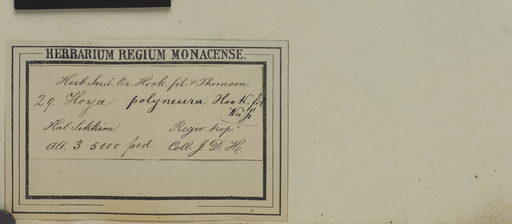 HERBARIUM REGIUM MONACENSE.
Herb. Ind. Or. Hook. fil. & Thomson.
29. Hoya polyneura Hook. fil
Hab. Sikkim. Regio. trop:
Alt. 3-5000 ped. Coll. J. D. H.